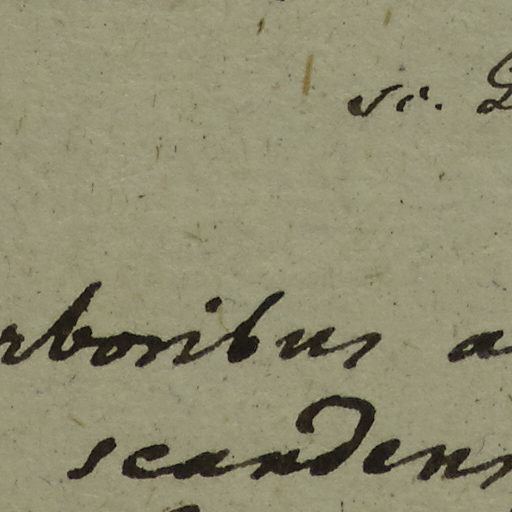 sc.
rboribus a
scandens